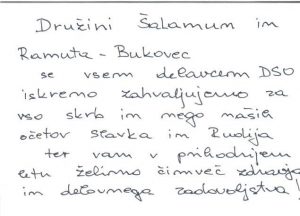 Družini Šalamun in
Ramuta - Bukovec
se vsem delavcem DSO
iskreno zahvaljujemo za
vso skrb in nego naših
očetov Slavka in Rudija
ter vam v prihodnjem
letu želimo čimveč zdravja
in delovnega zadovoljstva!